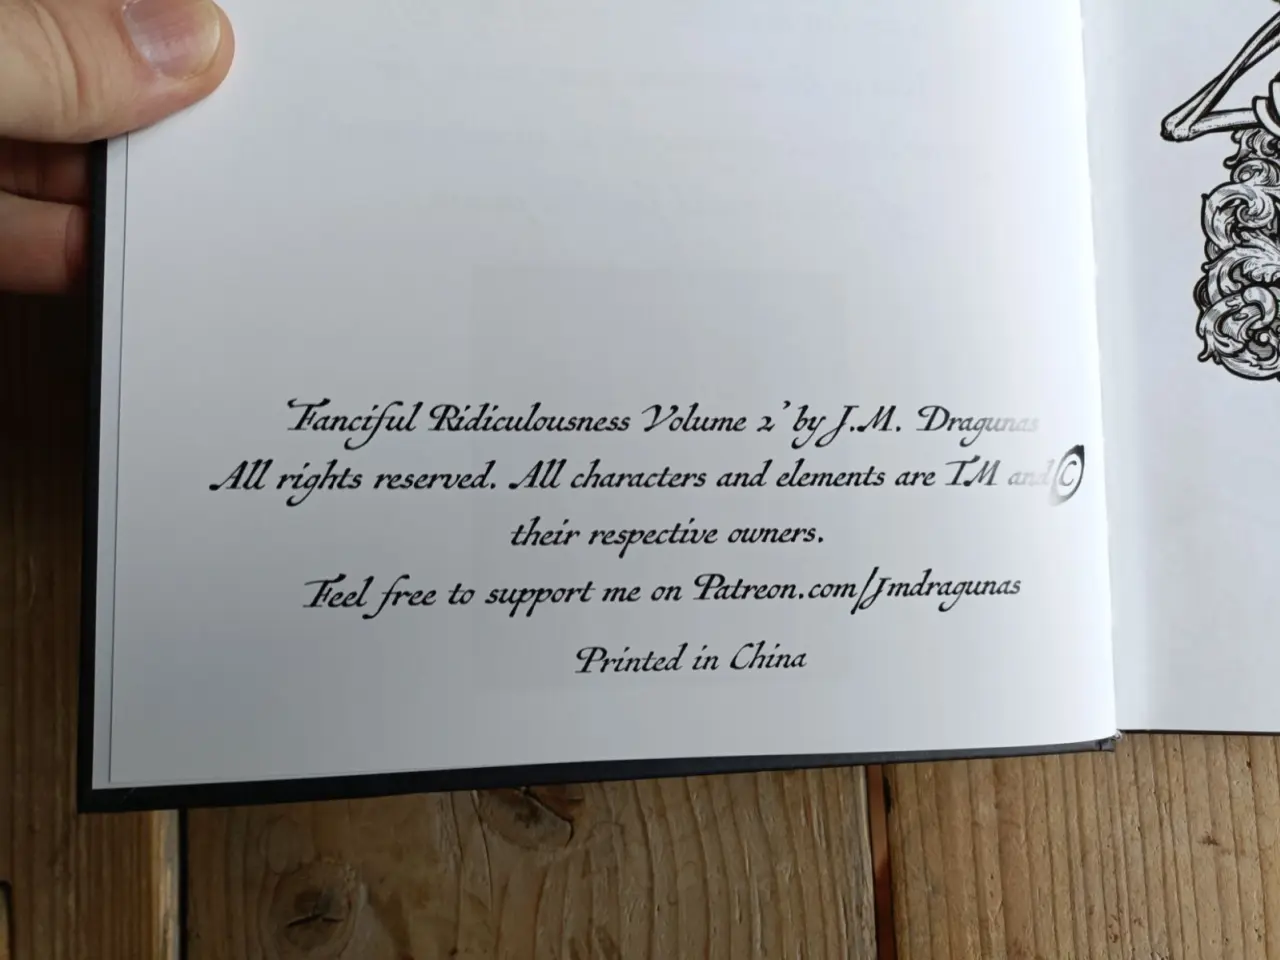 Fanciful Ridiculousness Volume 2' by J.M. Dragunas
All rights reserved. All characters and elements are TM and ©
their respective owners.
Feel free to support me on Patreon.com/Jmdragunas
Printed in China